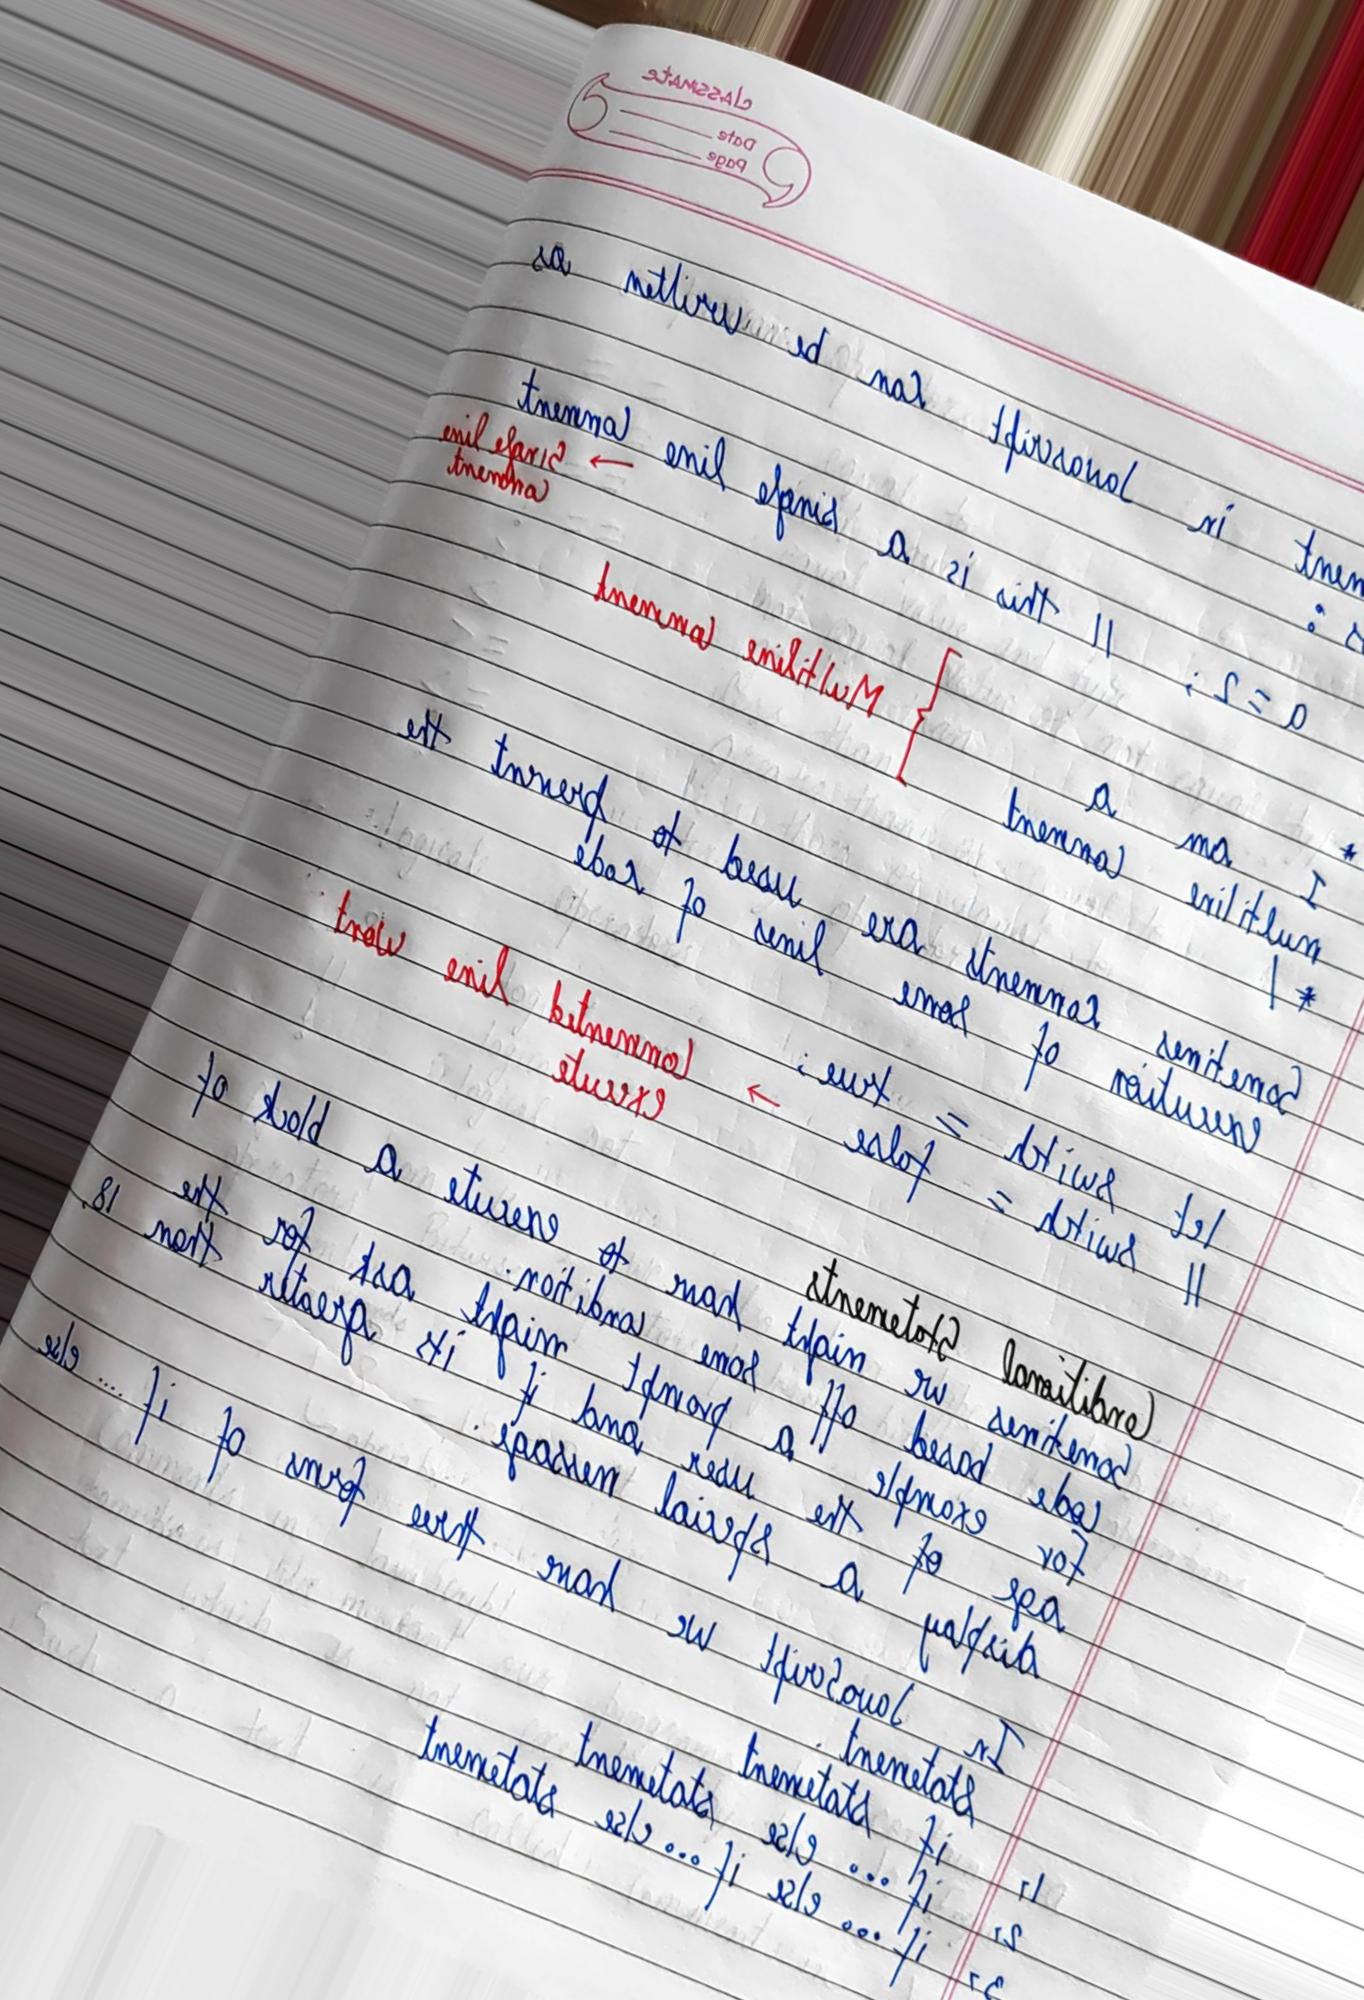 classmate
Date
Page
ment in Javascript can be written as
s :
a = 2 ; // this is a single line Comment ← Single line
comment
*
I am a
multiline Comment } Multiline Comment
* /
Sometimes comments are used to prevent the
execution of some lines of code
let switch = true ;
// switch = false ← Commented line won't
execute
Conditional Statements
Sometimes we might have to execute a block of
code based off some condition.
For example a prompt might ask for the
age of the user and if its greater than 18,
display a special message.
In JavaScript we have three forms of if .... else
statement.
1, if statement
2, if ... else statement
3, if ... else if ... else statement